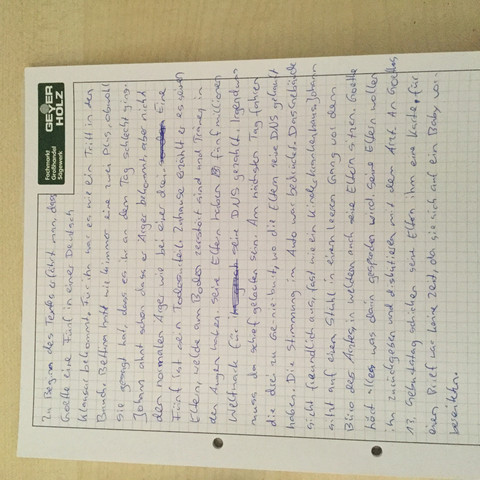 GEYER
HOLZ
Fachmarkt
Großhandel
Sägewerk
Zu Beginn des Textes erfährt man, dass
Goethe eine Fünf in einer Deutsch
Klausur bekommt. Für ihn war es wie ein Tritt in den
Bauch. Bettina hatte wie immer eine zwei Plus, obwohl
sie gesagt hat, dass es ihr an dem Tag schlecht ging.
Johann ahnt schon dass er Ärger bekommt, aber nicht
den normalen Ärger wie bei einer drei. Eine
Fünf ist sein Todesurteil. Zuhause erzählt er es seinen
Eltern, welche am Boden zerstört sind und Tränen in
den Augen haben. Seine Eltern haben fünf millionen
Weltmark für seine DNS gezahlt. Irgendwas
muss da schief gelaufen sein. Am nächsten Tag fahren
die die zu Genie hut, wo die Eltern seine DNS gekauft
haben. Die Stimmung im Auto war bedrückt. Das Gebäude
sieht freundlich aus, fast wie ein Kinderkrankenhaus. Johann
sitzt auf einen Stuhl in einem Leeren Gang vor dem
Büro des Arztes, in welchem auch seine Eltern sitzen. Goethe
hört alles was darin gesprochen wird. Seine Eltern wollen
ihn zurückgeben und diskutieren mit dem Arzt. An Goethes
17. Geburtstag schicken seine Eltern ihm eine Karte, für
einen Brief war keine Zeit, da sie sich auf ein Baby vor-
bereiten.